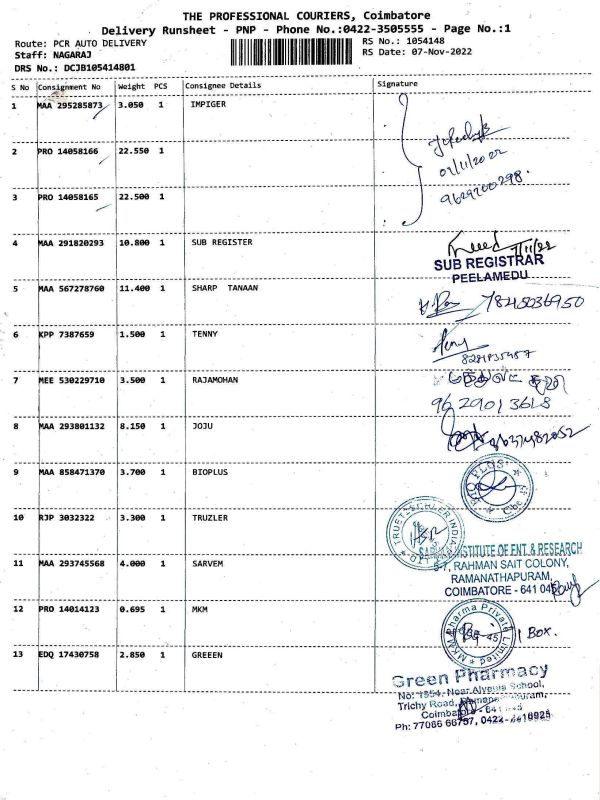 THE PROFESSIONAL COURIERS, Coimbatore
Delivery Runsheet - PNP - Phone No.:0422-3505555 - Page No.:1
Route: PCR AUTO DELIVERY
RS No.: 1054148
Staff: NAGARAJ
RS Date: 07-Nov-2022
DRS No.: DCJB105414801
S No Consignment No Weight PCS Consignee Details Signature
1 MAA 295285873 3.050 1 IMPIGER
2 PRO 14058166 22.550 1
3 PRO 14058165 22.500 1
9629200298.
4 MAA 291820293 10.800 1 SUB REGISTER
SUB REGISTRAR
PEELAMEDU
5 MAA 567278760 11.400 1 SHARP TANAAN
7845036950
6 KPP 7387659 1.500 1 TENNY
7 MEE 530229710 3.500 1 RAJAMOHAN
9629013618
8 MAA 293801132 8.150 1 JOJU
9 MAA 858471370 3.700 1 BIOPLUS
10 RJP 3032322 3.300 1 TRUZLER
11 MAA 293745568 4.000 1 SARVEM
INSTITUTE OF ENT. & RESEARCH
5-7, RAHMAN SAIT COLONY,
RAMANATHAPURAM,
COIMBATORE - 641 045
12 PRO 14014123 0.695 1 MKM
MKM Pharma Private Limited
1 Box.
13 EDQ 17430758 2.850 1 GREEEN
Green Pharmacy
No: 1954, Near Alvernia School,
Trichy Road,
Coimbatore - 641 045
Ph: 77086 66757, 0422-